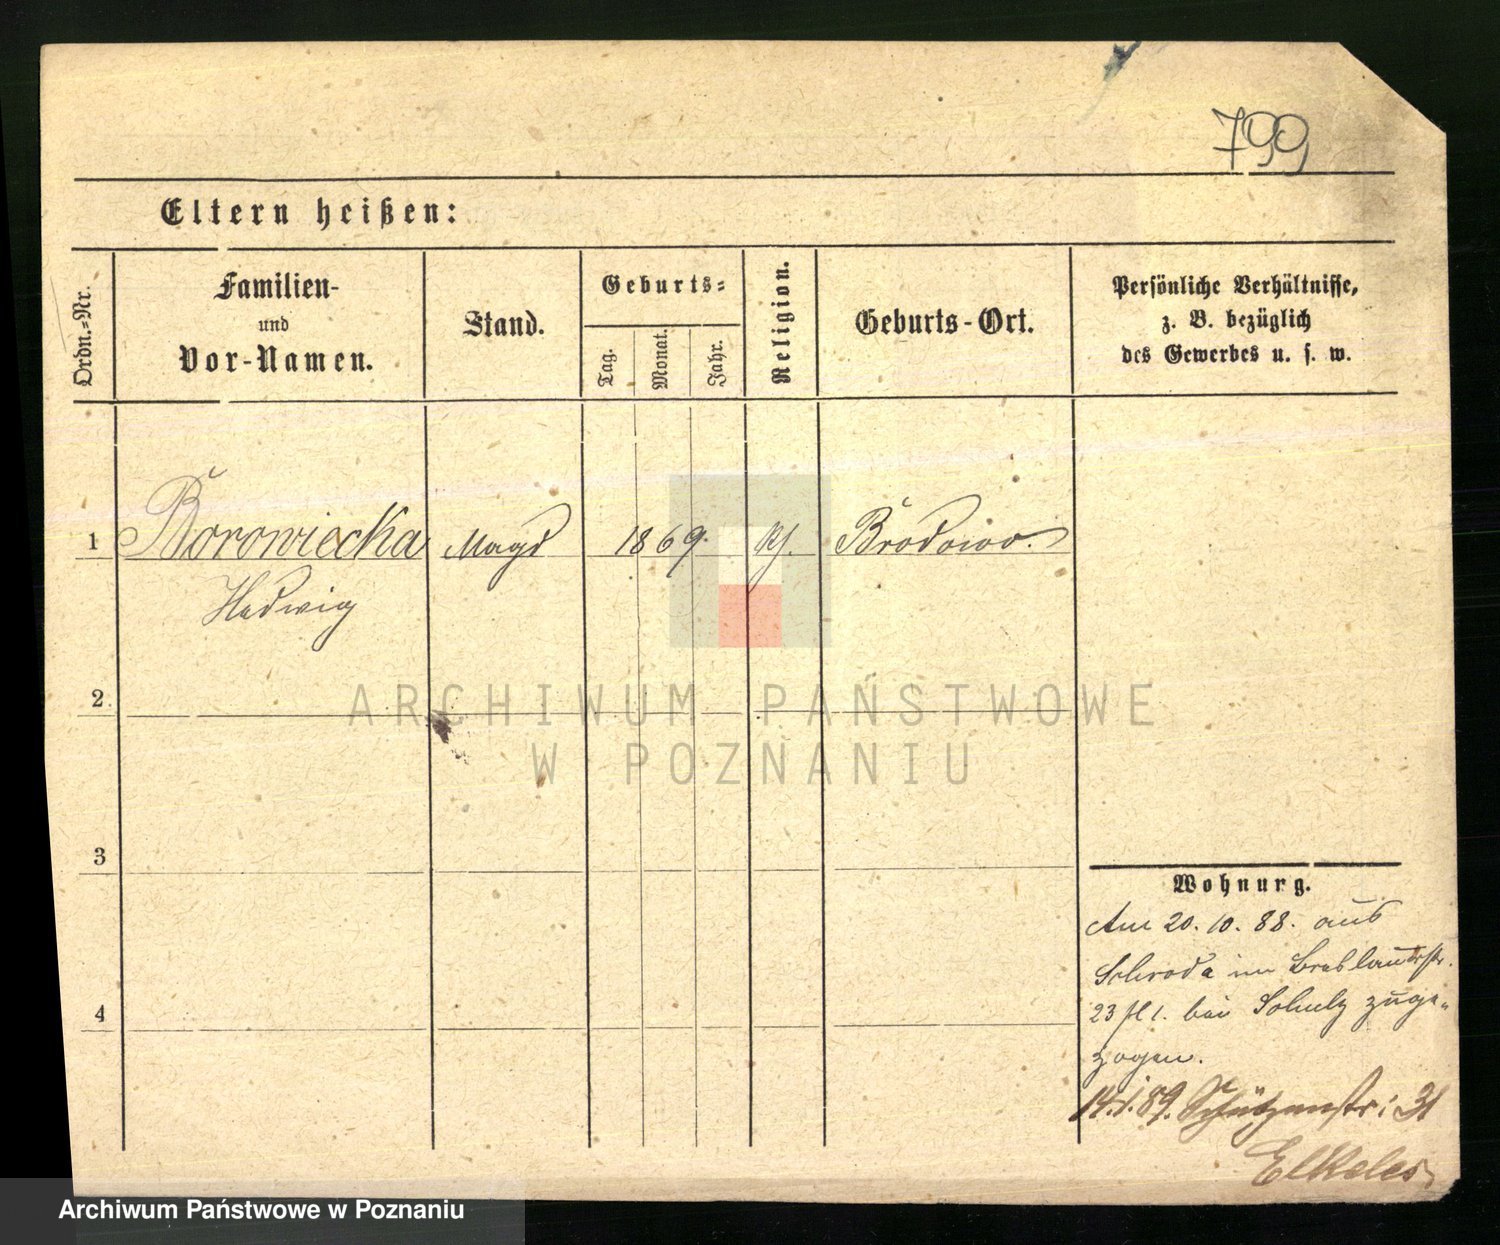 799
Eltern heißen:
Ordn.=Nr.
Familien-
und
Vor-Namen.
Stand.
Geburts=
Tag.
Monat.
Jahr.
Religion.
Geburts-Ort.
Persönliche Verhältnisse,
z. B. bezüglich
des Gewerbes u. s. w.
1 Borowiecka Magd 1869. kf. Brodowo.
Hedwig
2
3
4
Wohnung.
Am 20. 10. 88. aus
Schroda in Breslauerstr.
23 bei Schulz zuge-
zogen.
14.1.89. Schützenstr: 31
Elkeles
ARCHIWUM PAŃSTWOWE
W POZNANIU
Archiwum Państwowe w Poznaniu